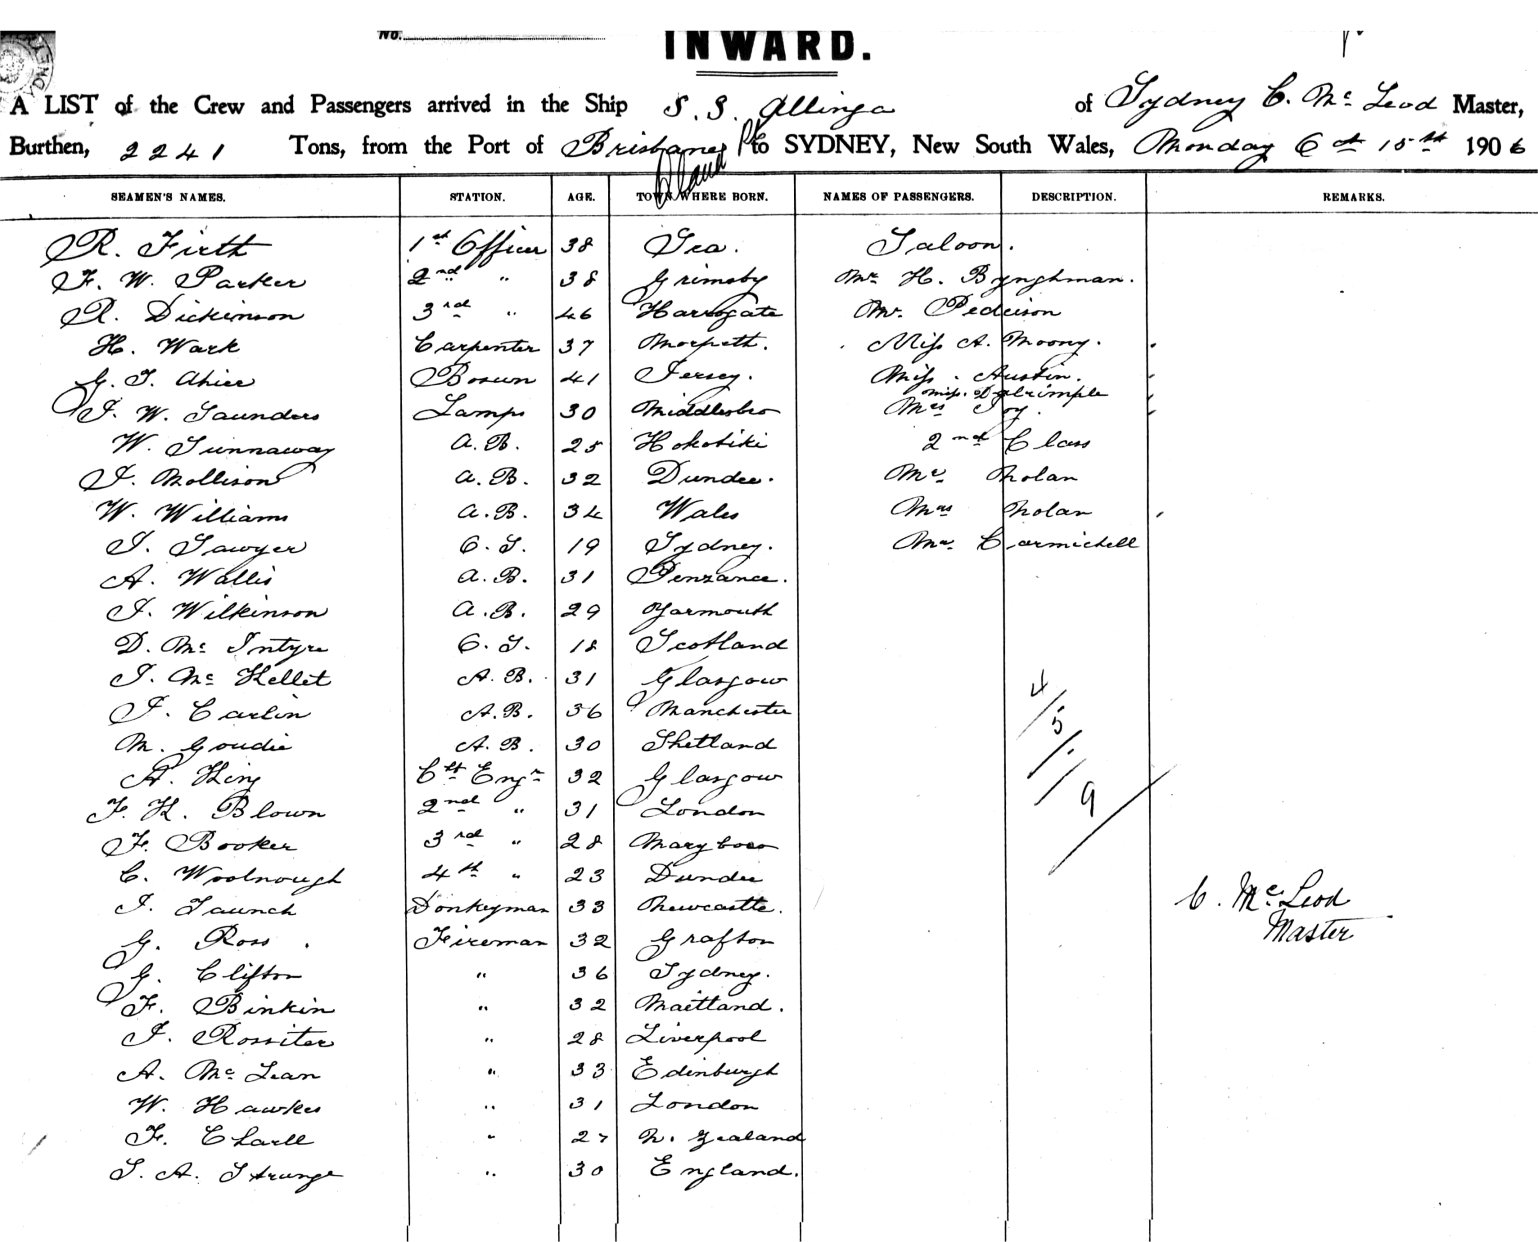 No.
INWARD.
A LIST of the Crew and Passengers arrived in the Ship S. S. Allinga of Sydney C. Mc Leod Master,
Burthen, 2241 Tons, from the Port of Brisbane to SYDNEY, New South Wales, Monday Oct 15th 1906
SEAMEN'S NAMES. STATION. AGE. TOWN WHERE BORN. NAMES OF PASSENGERS. DESCRIPTION. REMARKS.
R. Firth 1st Officer 38 Sea. Saloon.
F. W. Parker 2nd " 38 Grimsby Mr H. Bynghman.
R. Dickinson 3rd " 46 Harrogate Mr. Pederson
H. Wark Carpenter 37 Morpeth. Miss A. Moony.
G. J. Ahier Bosun 41 Jersey. Miss. Austin.
Miss. Dalrimple
J. W. Saunders Lamps 30 Middlesbro Mrs Joy.
W. Sunnaway A.B. 25 Hokotiki 2nd Class
J. Mollison A.B. 32 Dundee. Mr Nolan
W. Williams A.B. 34 Wales Mrs Nolan
J. Sawyer O.S. 19 Sydney. Mr Carmichell
A. Wallis A.B. 31 Penzance.
J. Wilkinson A.B. 29 Yarmouth
D. Mc Intyre O.S. 18 Scotland
J. Mc Kellet A.B. 31 Glasgow
J. Carlin A.B. 36 Manchester
M. Goudie A.B. 30 Shetland
A. King Ch Engr 32 Glasgow
F. H. Blown 2nd " 31 London
F. Booker 3rd " 28 Maryboro
C. Woolnough 4th " 23 Dundee
J. Saunch Donkeyman 33 Newcastle.
G. Ross. Fireman 32 Grafton
G. Clifton " 36 Sydney.
F. Binkin " 32 Maitland.
J. Rossiter " 28 Liverpool
A. Mc Lean " 33 Edinburgh
W. Hawkes " 31 London
F. Charll " 27 N. Zealand
S. A. Strunge " 30 England.
4/5/./9/
C. Mc Leod
Master